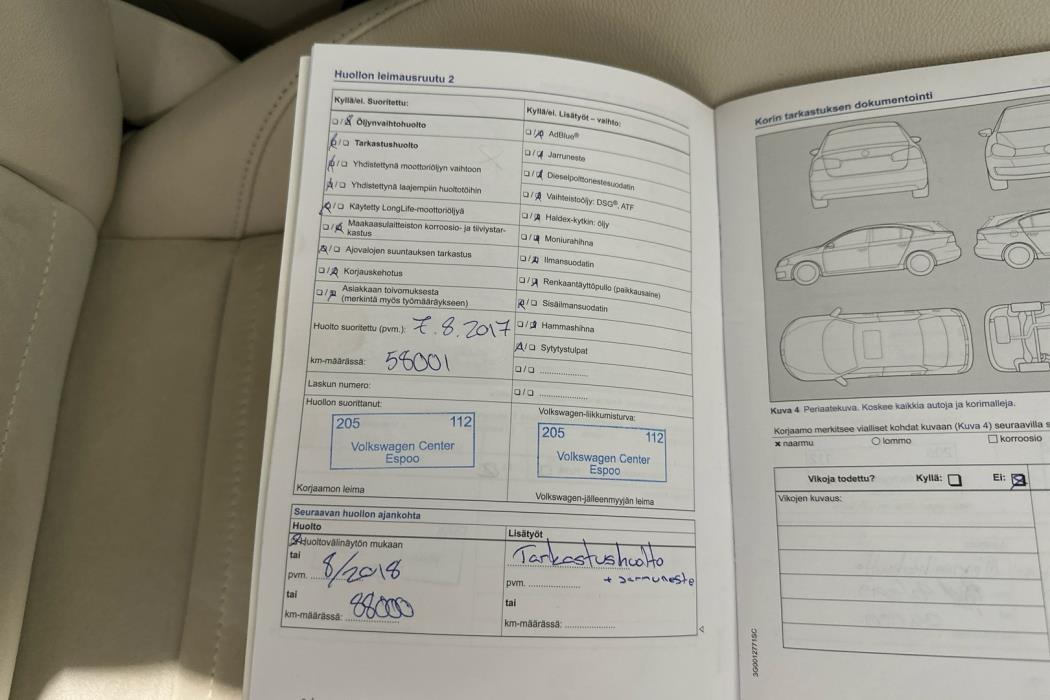 Huollon leimausruutu 2
Kyllä/ei. Suoritettu:
☐/☒ Öljynvaihtohuolto
☒/☐ Tarkastushuolto
☒/☐ Yhdistettynä moottoriöljyn vaihtoon
☒/☐ Yhdistettynä laajempiin huoltotöihin
☒/☐ Käytetty LongLife-moottoriöljyä
☐/☒ Maakaasulaitteiston korroosio- ja tiiviystar-
kastus
☒/☐ Ajovalojen suuntauksen tarkastus
☐/☒ Korjauskehotus
☐/☒ Asiakkaan toivomuksesta
(merkintä myös työmääräykseen)
Huolto suoritettu (pvm.): 7.8.2017
km-määrässä: 58001
Laskun numero:
Huollon suorittanut:
205 112
Volkswagen Center
Espoo
Korjaamon leima
Kyllä/ei. Lisätyöt – vaihto:
☐/☒ AdBlue®
☐/☒ Jarruneste
☐/☒ Dieselpolttonestesuodatin
☐/☒ Vaihteistoöljy: DSG®, ATF
☐/☒ Haldex-kytkin: öljy
☐/☒ Moniurahihna
☐/☒ Ilmansuodatin
☐/☒ Renkaantäyttöpullo (paikkausaine)
☒/☐ Sisäilmansuodatin
☐/☒ Hammashihna
☒/☐ Sytytystulpat
☐/☐ ....................
☐/☐ ....................
Volkswagen-liikkumisturva:
205 112
Volkswagen Center
Espoo
Volkswagen-jälleenmyyjän leima
Seuraavan huollon ajankohta
Huolto
☒ Huoltovälinäytön mukaan
tai
pvm. 8/2018
tai
km-määrässä: 88000
Lisätyöt
Tarkastushuolto
+ jarruneste
pvm. ....................
tai
km-määrässä: ....................
Korin tarkastuksen dokumentointi
Kuva 4 Periaatekuva. Koskee kaikkia autoja ja korimalleja.
Korjaamo merkitsee vialliset kohdat kuvaan (Kuva 4) seuraavilla
× naarmu ○ lommo ☐ korroosio
Vikoja todettu? Kyllä: ☐ Ei: ☒
Vikojen kuvaus:
3G0012771SC